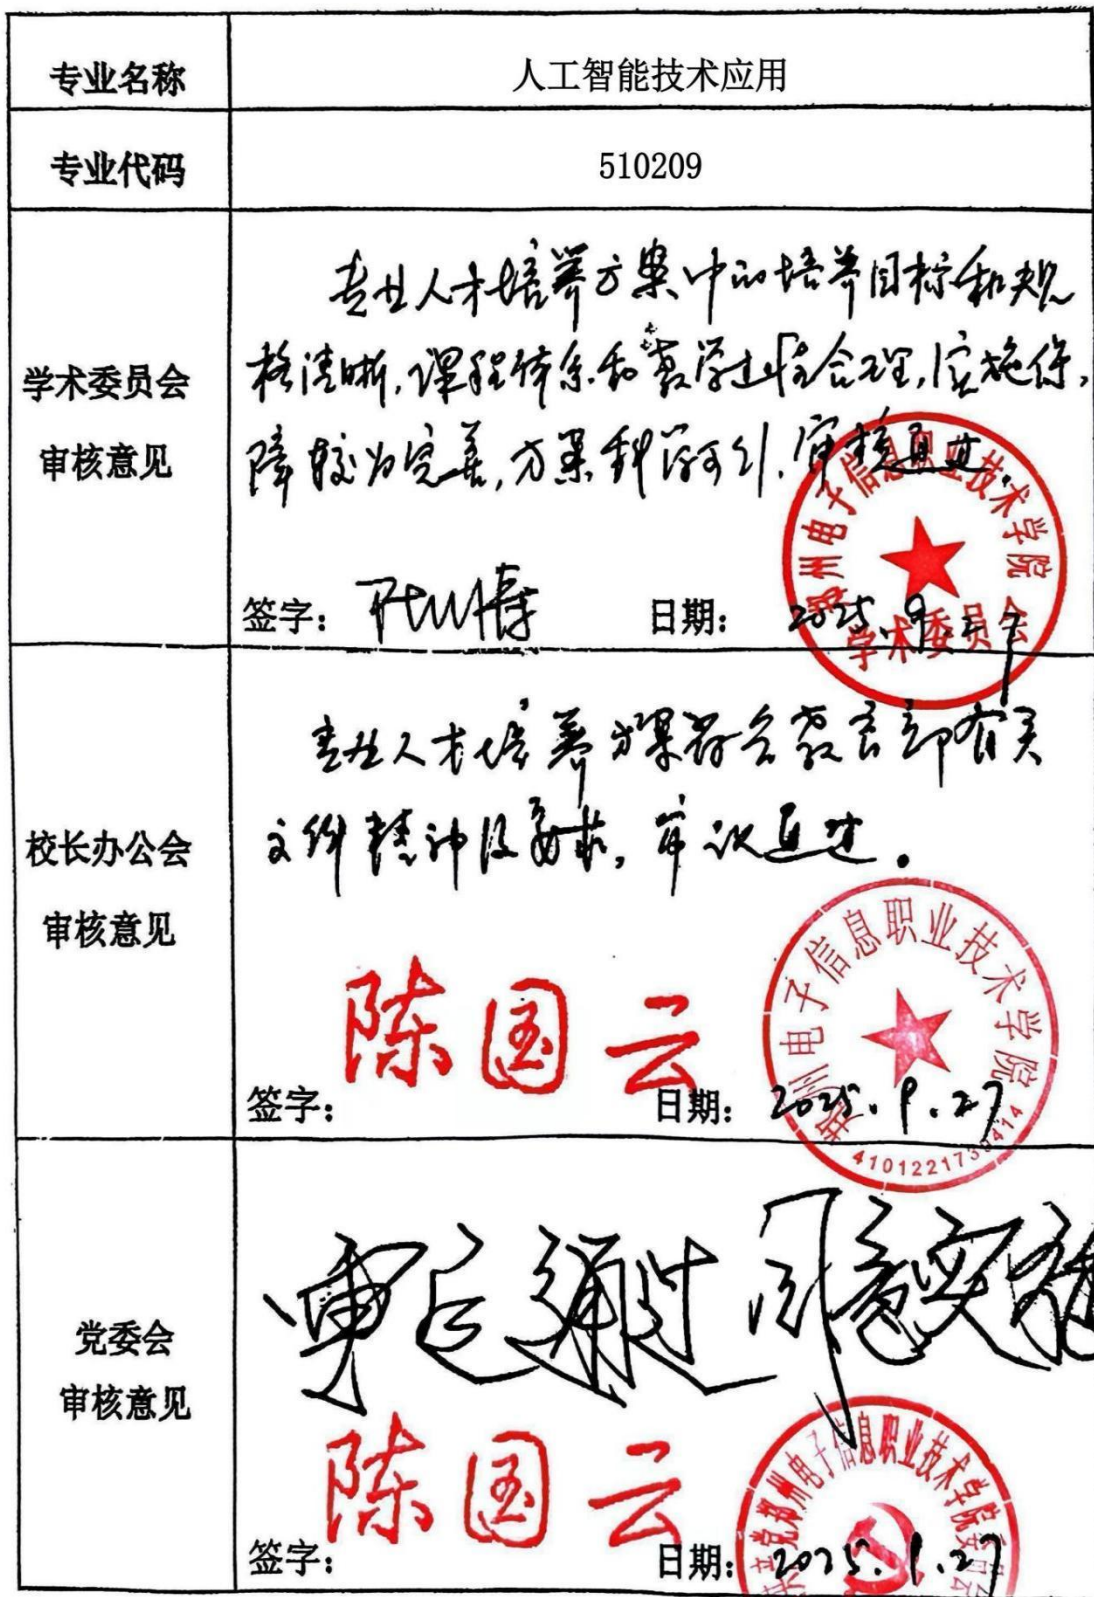 专业名称
人工智能技术应用
专业代码
510209
学术委员会
审核意见
专业人才培养方案中的培养目标和规
格清晰,课程体系和教学进程合理,实施保
障较为完善,方案科学可行,审核通过.
签字:
日期: 2025.9.27
郑州电子信息职业技术学院
学术委员会
校长办公会
审核意见
专业人才培养方案符合教育部有关
文件精神及要求,审议通过。
签字: 陈国云
日期: 2025.9.27
郑州电子信息职业技术学院
党委会
审核意见
审定通过 同意实施
签字: 陈国云
日期: 2025.9.27
郑州电子信息职业技术学院